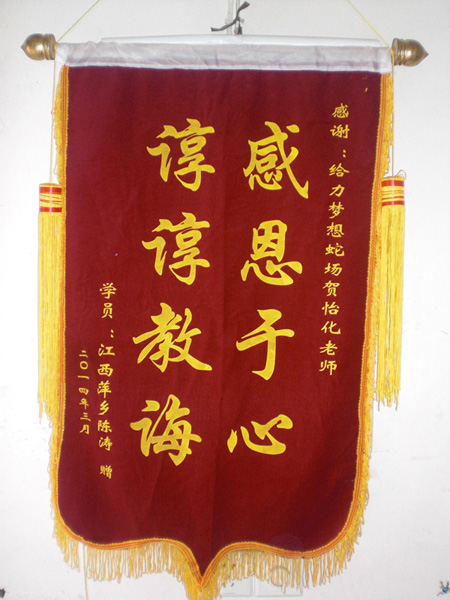 感谢：给力梦想蛇场贺怡化老师
感恩于心
谆谆教诲
学员：江西萍乡陈涛 赠
二〇一四年三月